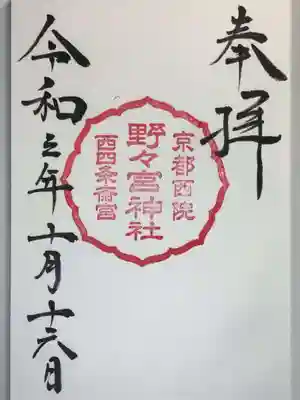 奉拝
京都西院
野々宮神社
西四条斎宮
令和元年十月十六日